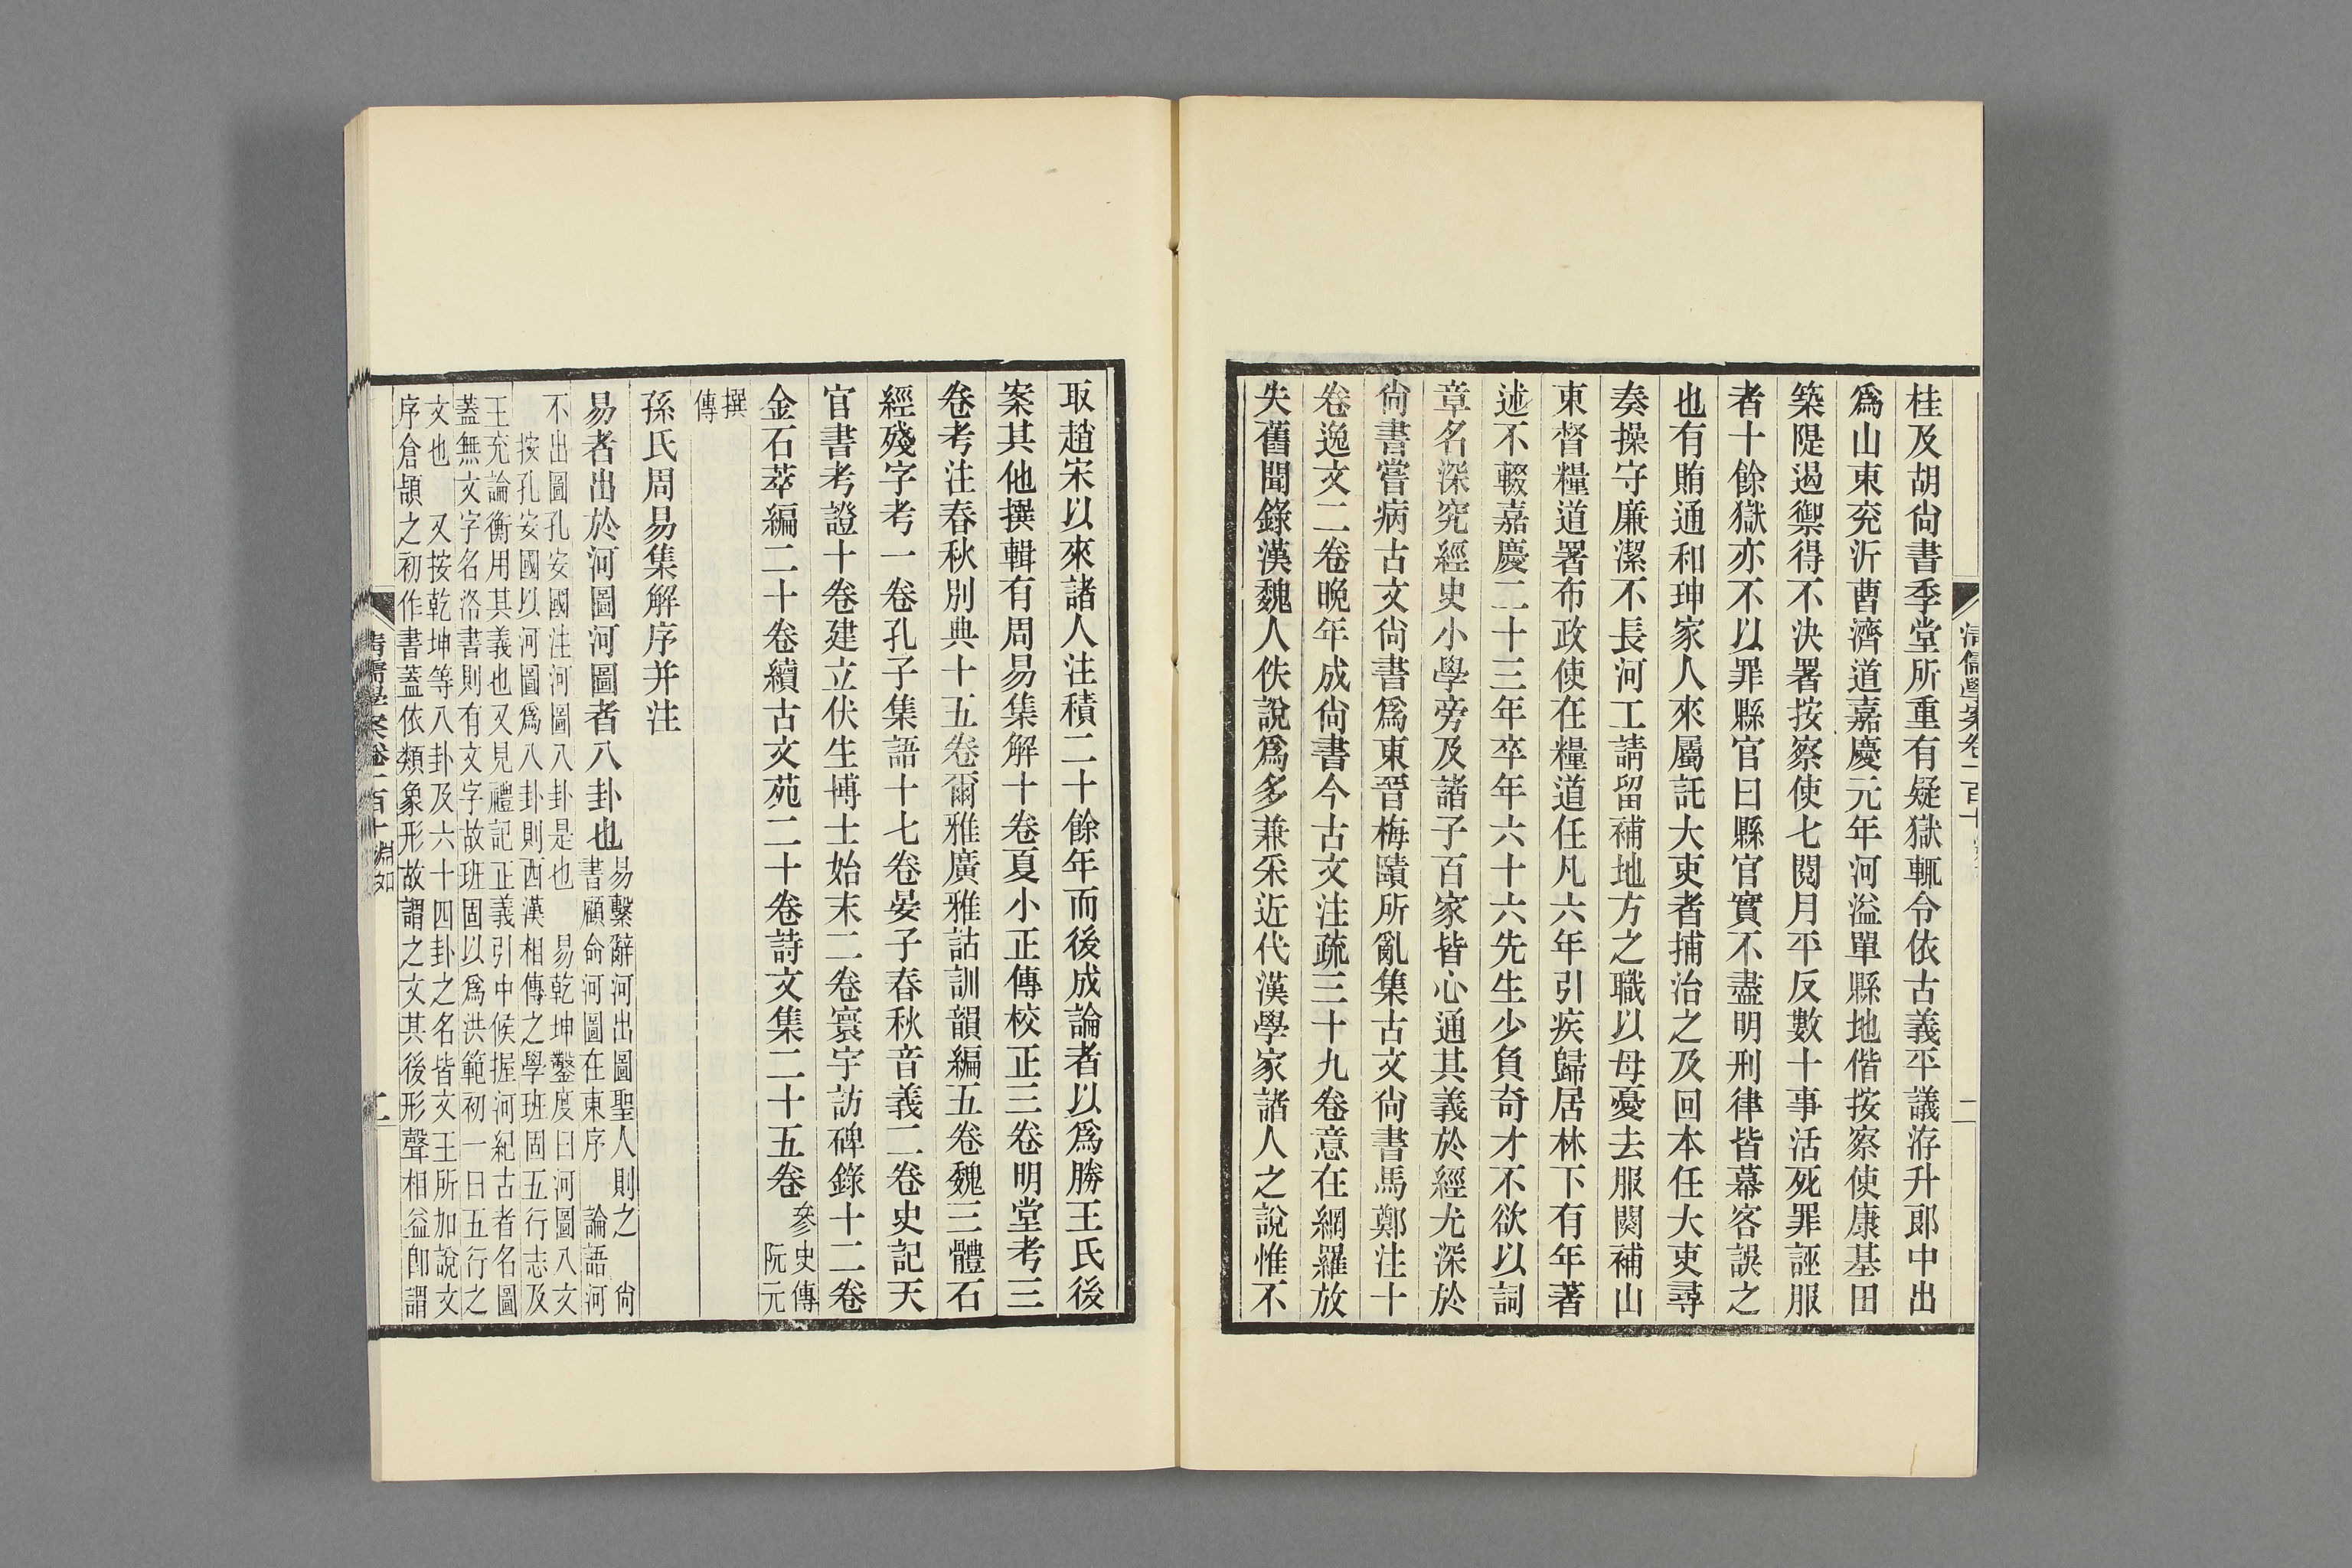 桂及胡尙書季堂所重有疑獄輒令依古義平議洊升郎中出
爲山東兗沂曹濟道嘉慶元年河溢單縣地偕按察使康基田
築隄遏禦得不決署按察使七閱月平反數十事活死罪誣服
者十餘獄亦不以罪縣官曰縣官實不盡明刑律皆幕客誤之
也有賄通和珅家人來屬託大吏者捕治之及回本任大吏尋
奏操守廉潔不長河工請留補地方之職以母憂去服闋補山
東督糧道署布政使在糧道任凡六年引疾歸居林下有年著
述不輟嘉慶二十三年卒年六十六先生少負奇才不欲以詞
章名深究經史小學旁及諸子百家皆心通其義於經尤深於
尙書嘗病古文尙書爲東晉梅賾所亂集古文尙書馬鄭注十
卷逸文二卷晚年成尙書今古文注疏三十九卷意在網羅放
失舊聞錄漢魏人佚說爲多兼采近代漢學家諸人之說惟不
取趙宋以來諸人注積二十餘年而後成論者以爲勝王氏後
案其他撰輯有周易集解十卷夏小正傳校正三卷明堂考三
卷考注春秋別典十五卷爾雅廣雅詁訓韻編五卷魏三體石
經殘字考一卷孔子集語十七卷晏子春秋音義二卷史記天
官書考證十卷建立伏生博士始末二卷寰宇訪碑錄十二卷
金石萃編二十卷續古文苑二十卷詩文集二十五卷參史傳
阮元
撰
傳
孫氏周易集解序并注
易者出於河圖河圖者八卦也易繫辭河出圖聖人則之 尙
書顧命河圖在東序 論語河
不出圖孔安國注河圖八卦是也 易乾坤鑿度曰河圖八文
按孔安國以河圖爲八卦則西漢相傳之學班固五行志及
王充論衡用其義也又見禮記正義引中候握河紀古者名圖
蓋無文字名洛書則有文字故班固以爲洪範初一曰五行之
文也 又按乾坤等八卦及六十四卦之名皆文王所加說文
序倉頡之初作書蓋依類象形故謂之文其後形聲相益卽謂
清儒學案卷一百十 淵如
二
清儒學案卷一百十
二